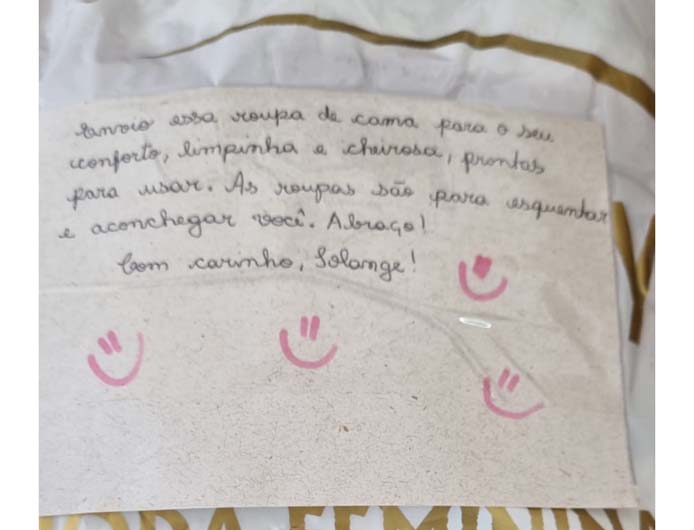 Envio essa roupa de cama para o seu
conforto, limpinha e cheirosa, prontas
para usar. As roupas são para esquentar
e aconchegar você. Abraço!
Com carinho, Solange!
FEMININ